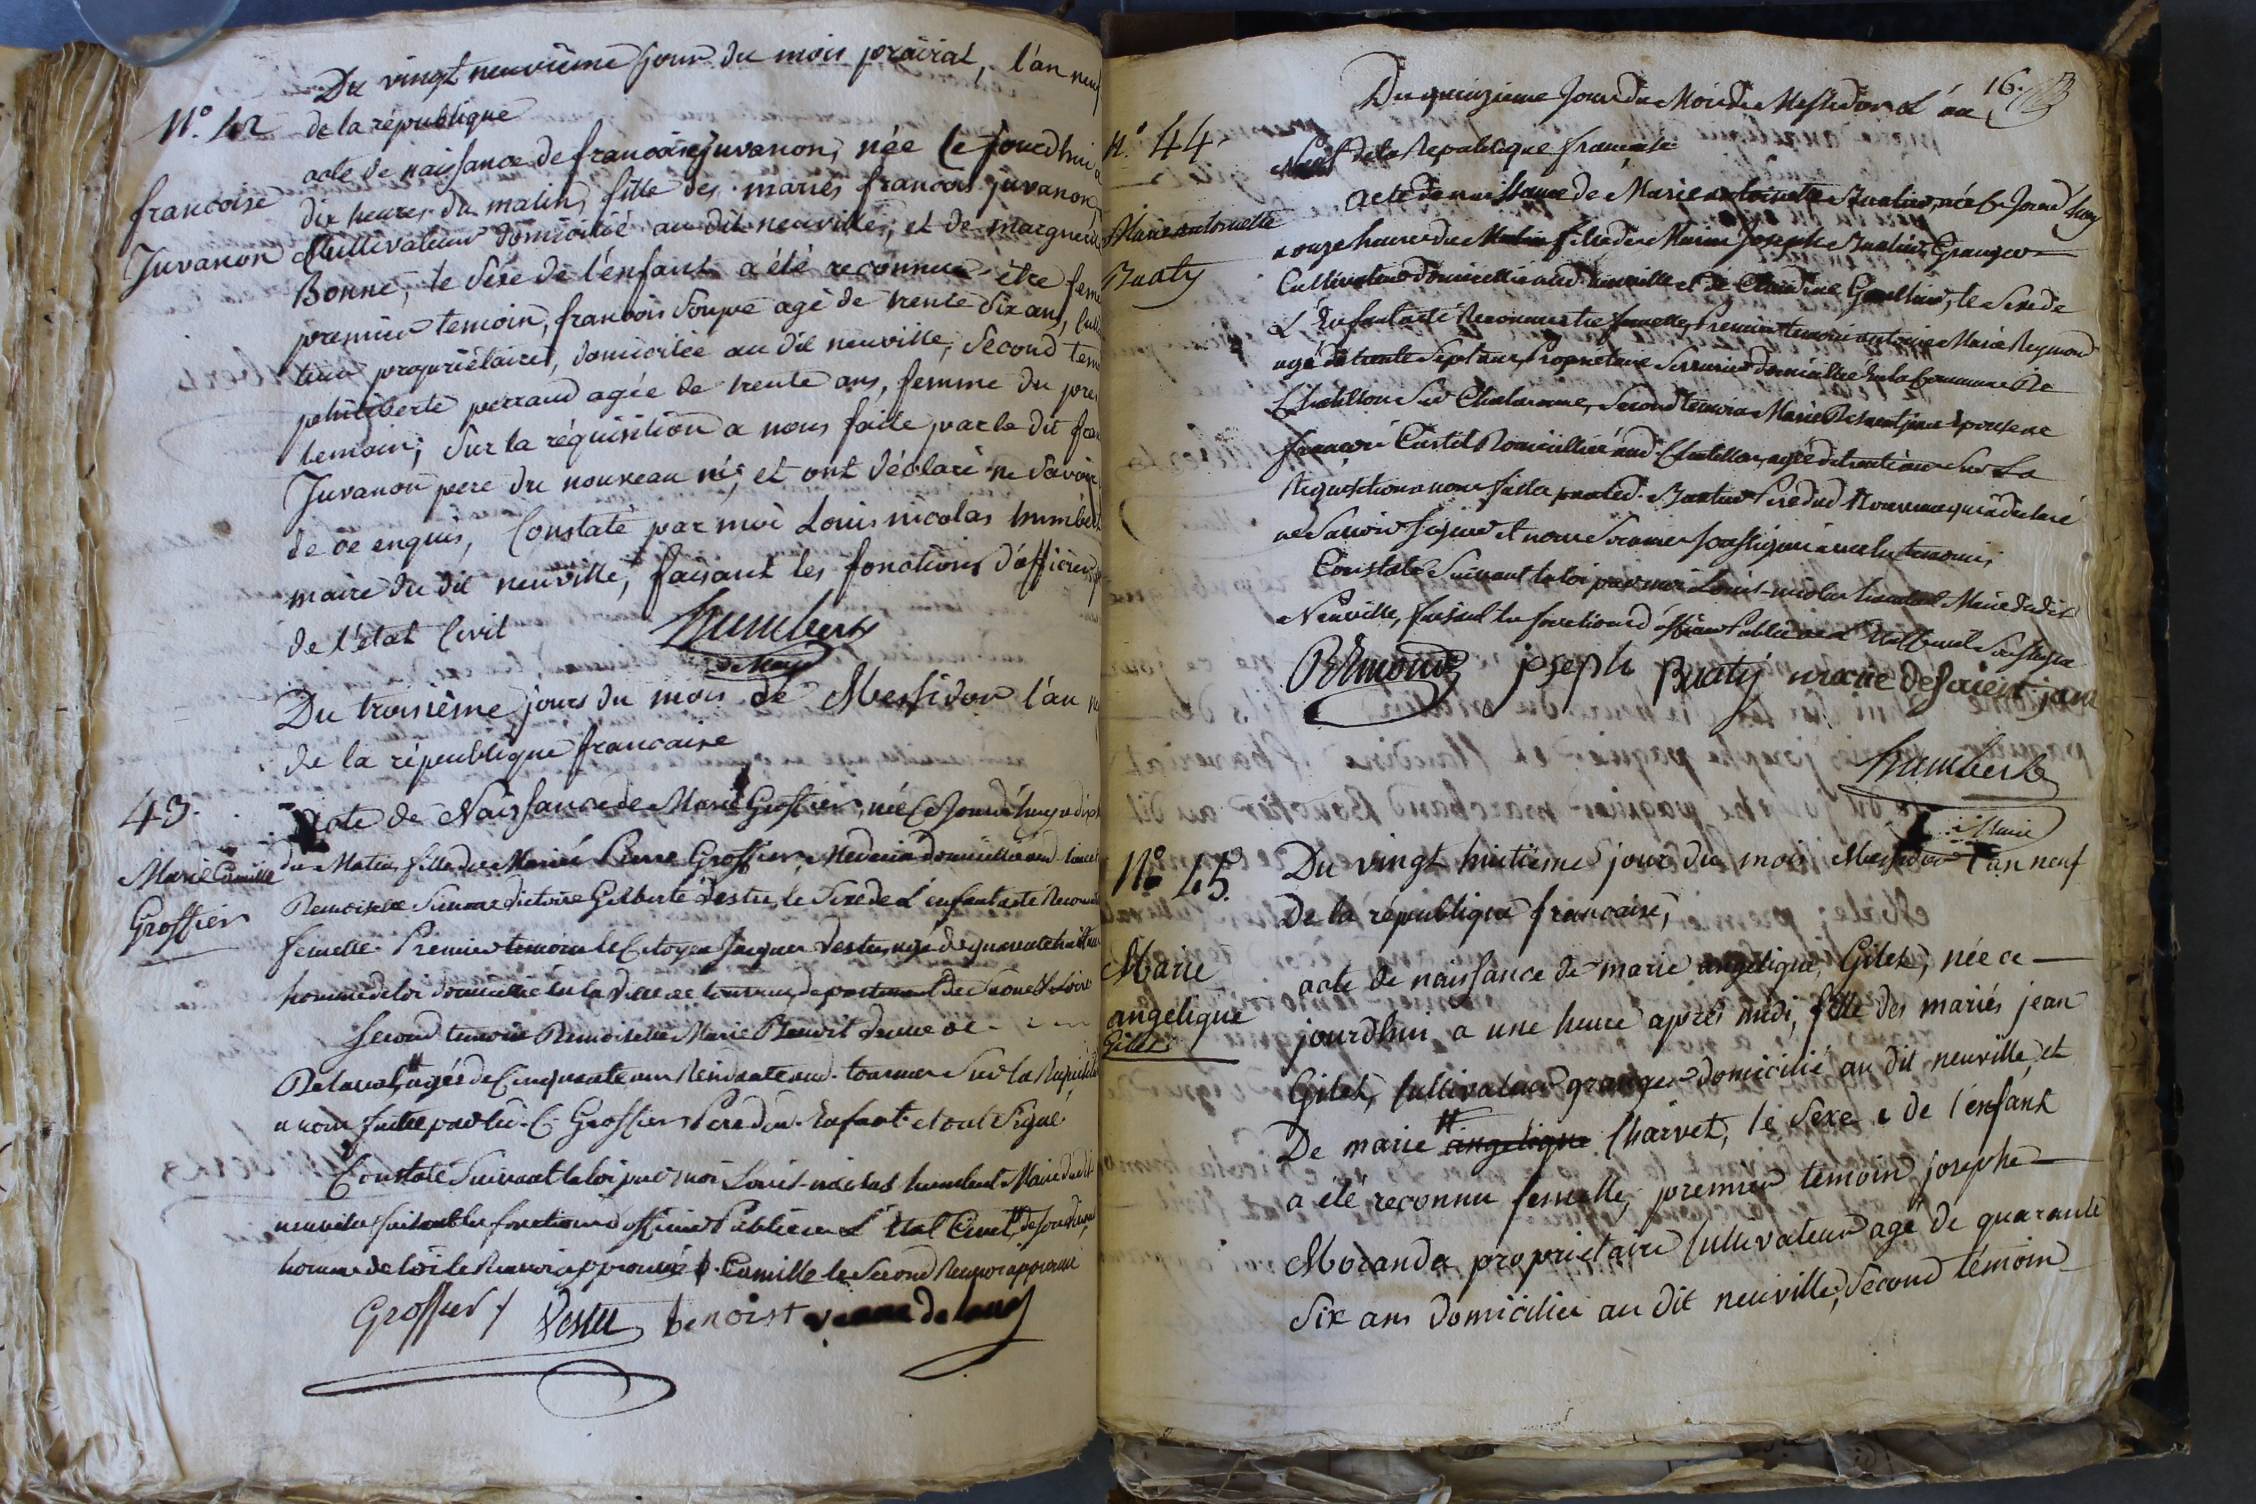 Du vingt neuvième jour du mois prairial, l'an neuf
N.º 42 de la république
acte de naissance de francoise juvanon, née ce jourdhui a
francoise dix heures du matin, fille des mariés francois juvanon,
Juvanon Cultivateur domicilié au dit neuville, et de marguerite
Bonne, le sexe de l'enfant a été reconnue être feme
premier temoin, francois Soupe agé de trente six ans, Culti
teur propriétaires, domicilée au dit neuville, second tem
philiberte perraud agée de trente ans, femme du pre
temoin; Sur la réquisition a nous faite par le dit fran
Juvanon pere du nouveau né; et ont déclaré ne savoir
de ce enquis, Constaté par moi Louis nicolas humbert
maire du dit neuville, faisant les fonctions d'officier
de l'état Civil
humbert
Du troisième jours du mois de Messidor l'an n
de la république francaise
43. acte de Naissance de Marie Grossier, née Ce Jourd'huy a dix
Marie Camille du Matin, fille des Mariés Pierre Grossier, Medecin domicilié aud.
Grossier Demoiselle Simone victoire Gilberte Destu, le Sexe de L'enfant a été Reconnu
femelle. Premier temoin le Citoyen Jacques Destu, agé de quarante huit ans
homme de loi domicilié en la Ville de tournus, departement de Saone & Loire
Second temoin Demoiselle Marie Benoit veuve de
Delaval, agée de Cinquante ans Residante aud. tournus Sur la Requisition
a nous faitte par led. C. Grossier Pere dud. Enfant et ont Signé
Constaté Suivant la loi par moi Louis-nicolas humbert Maire dudit
neuville faisant les fonctions d'officier Public de L'état Civil,
homme de loi le Renvoi approuvé. Camille le Second Renvoi approuvé
Grossier Destu benoist veuve de laval
16.
Du quinzieme Jour du Mois de Messidor L'an
N.º 44. Neuf de la Republique francaise
acte de naissance de Marie antoinette Buatier, née Ce Jourd'huy
Marie antoinette a onze heures du Matin fille des Mariés Joseph Buatier, Granger
Buaty Cultivateur domicillié aud. neuville et de Claudine Gaultier, le Sexe de
L'Enfant a été Reconnu être femelle, Premier temoin antoine Marie Reymond
agé de trente Sept ans, Propriétaire Serrurier domicillié En la Commune De
Chatillon Sur Chalaronne, Second temoin Marie Desaintjean Epouse de
francois Curtil Domicillié aud. Chatillon, agée de trente ans Sur La
Réquisition a nous faitte par led. Buatier Pere dud. Nouveau né qui a declaré
ne Savoir signer et nous Sommes soussigné avec les temoins,
Constaté Suivant la loi par moi Louis-nicolas humbert Maire dudit
Neuville, faisant les fonctions d'officier Public de L'état Civil Soussigné
REmond joseph Buaty marie desaient jean
humbert
Maire
Nº 45. Du vingt huitième jour du mois Messidor l'an neuf
De la république francaise,
Marie acte de naissance de marie angelique, Gilet, née ce
angelique jourdhui a une heure après midi, fille des mariés jean
Gilet Gilet, Cultivateur granger domicilié au dit neuville, et
De marie angelique Charvet, le Sexe e de l'enfant
a été reconnu femelle, premier temoin joseph
Morandx propriétaire Cultivateur agé de quarante
Six ans Domicilié au dit neuville, Second témoin